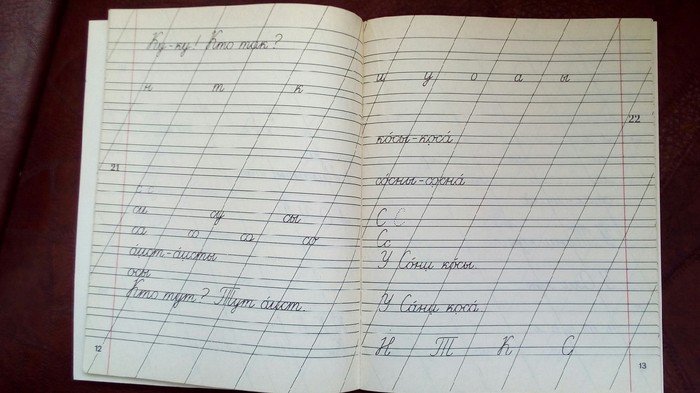 Ку-ку! Кто там?
н т к
21
с с
си су сы
са со са со
а́ист-а́исты
осы
Кто тут? Тут а́ист.
12
и у о а ы
22
ко́сы-коса́
со́сны-сосна́
С С
Сс
У Со́ни ко́сы.
У Со́ни коса́
Н Т К С
13